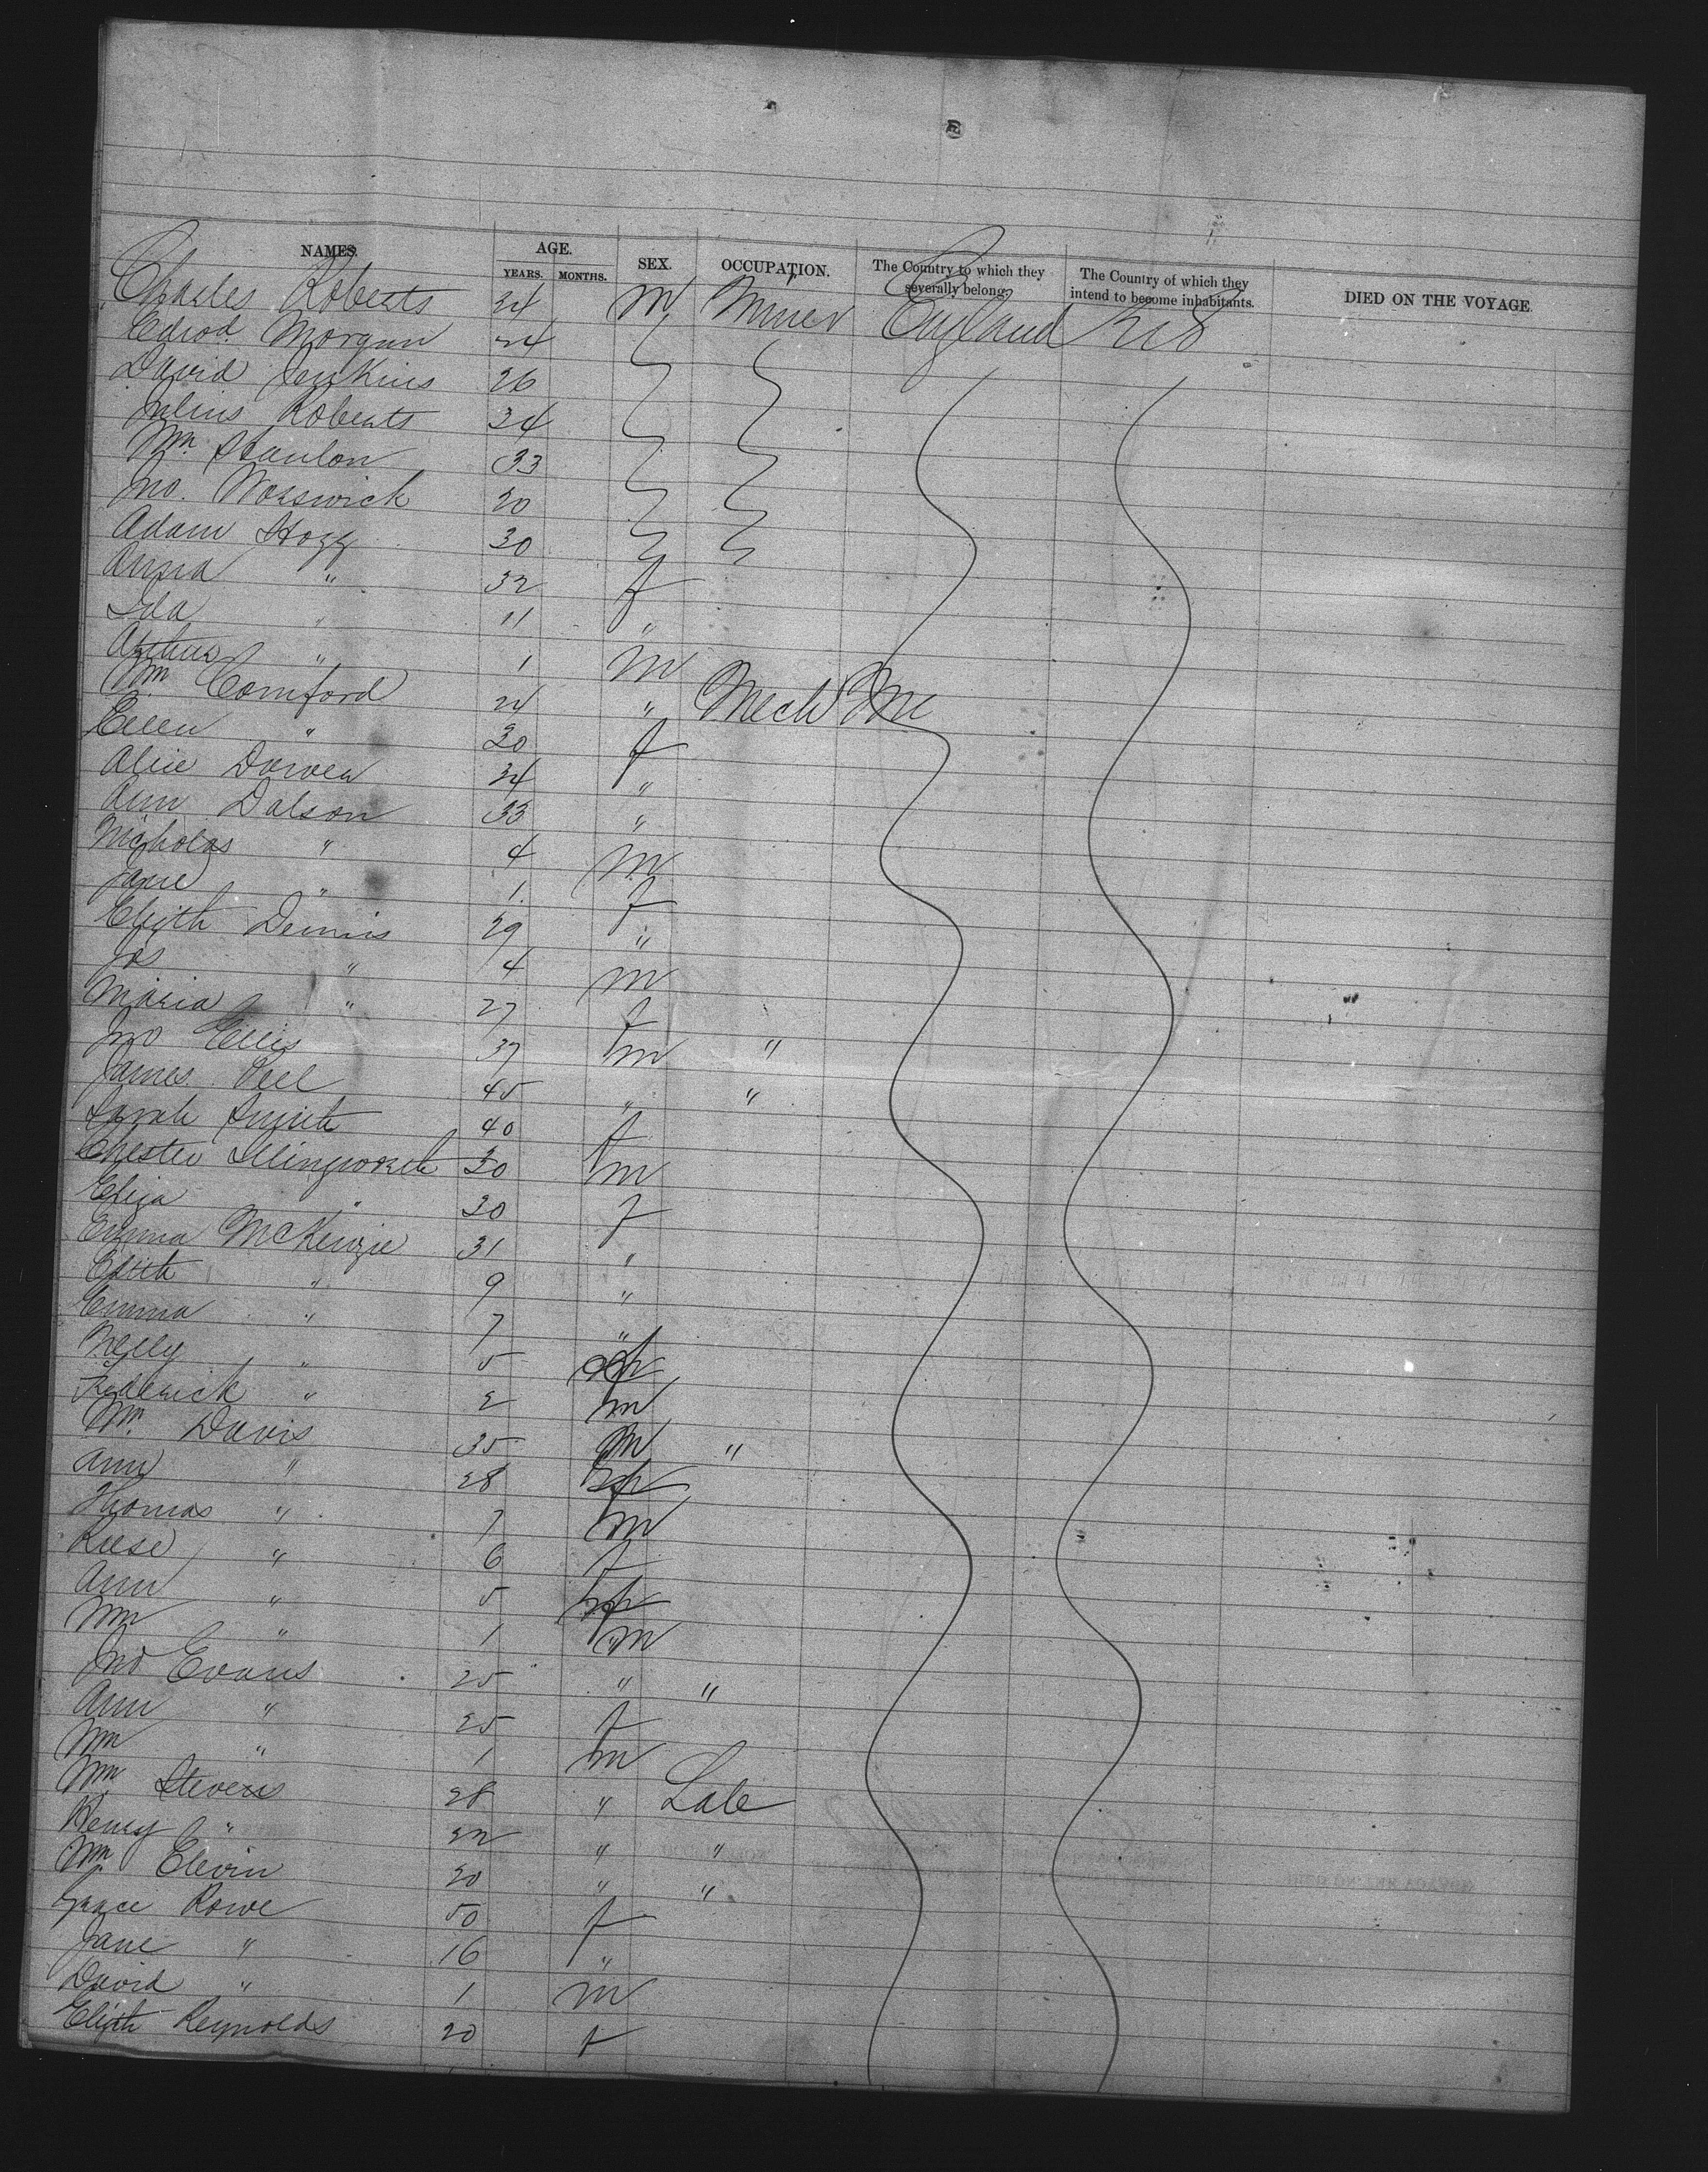 NAMES. AGE. YEARS. MONTHS. SEX. OCCUPATION. The Country to which they severally belong. The Country of which they intend to become inhabitants. DIED ON THE VOYAGE
Charles Roberts 24 M Miner England U S
Edwd. Morgan 24
David Jenkins 26
Julius Roberts 24
Wm. Scanlon 33
Jno. Worswick 20
Adam Hogg 30
Anna " 32 f
Ida " 11 "
Arthur " 1 M
Wm Comford 24 " Mech
Ellen " 20 f
Alice Darwen 24 "
Ann Dalson 33 "
Nicholas " 4 M
Jane " 1 f
Elizth Dennis 29 "
Jos " 4 M
Maria " 27 f
Jno Ellis 37 m "
James Peel 45 " "
Sarah Smith 40 f
Chester Illingworth 30 m
Eliza " 20 f
Emma McKenzie 31 "
Edith " 9 "
Emma " 7 "
Nelly " 5 f
Frederick " 2 m
Wm. Davis 35 M "
Ann " 28 f
Thomas " 7 m
Reese " 6 f
Ann " 5 f
Wm " 1 m
Jno Evans 25 " "
Ann " 25 f
Wm " 1 m
Wm Stevens 28 " Lab
Henry " 22 " "
Wm Elevin 20 " "
Grace Rowe 50 f
Jane " 16 "
David " 1 m
Elizth Reynolds 20 f